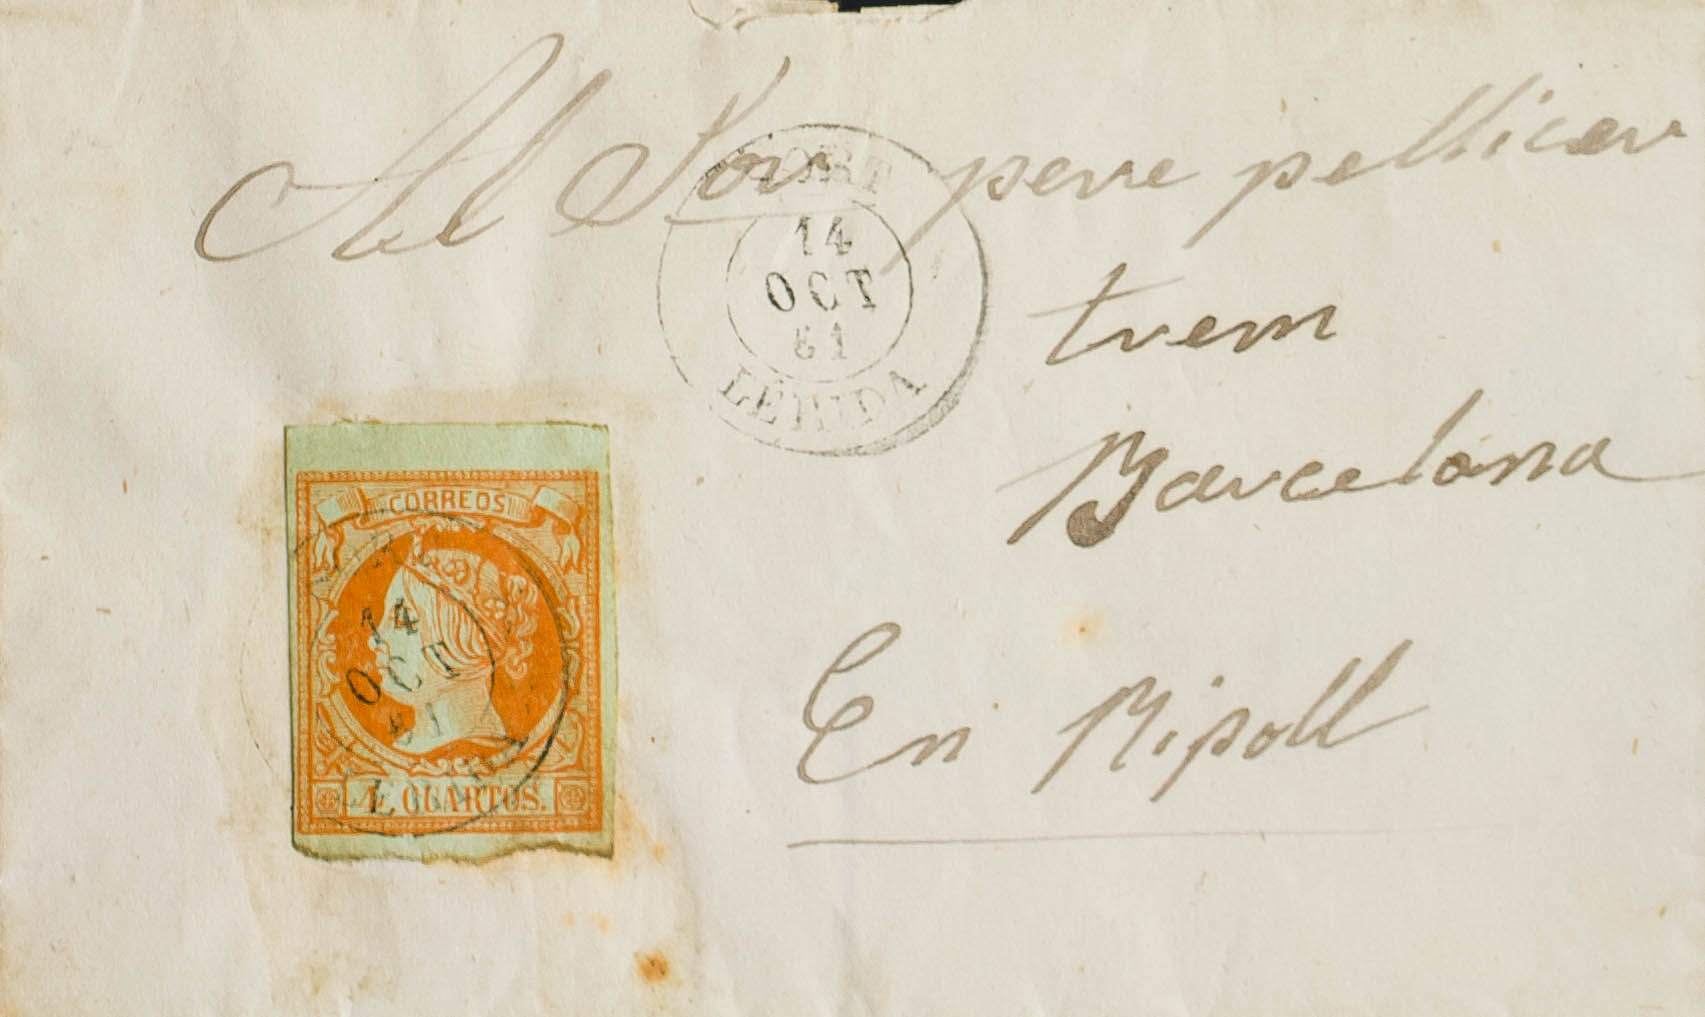 Al Sor pere pellicer
SORT
14
OCT
61
LÉRIDA
trem
Barcelona
CORREOS
14
OCT
61
LERIDA
4 CUARTOS.
En Ripoll